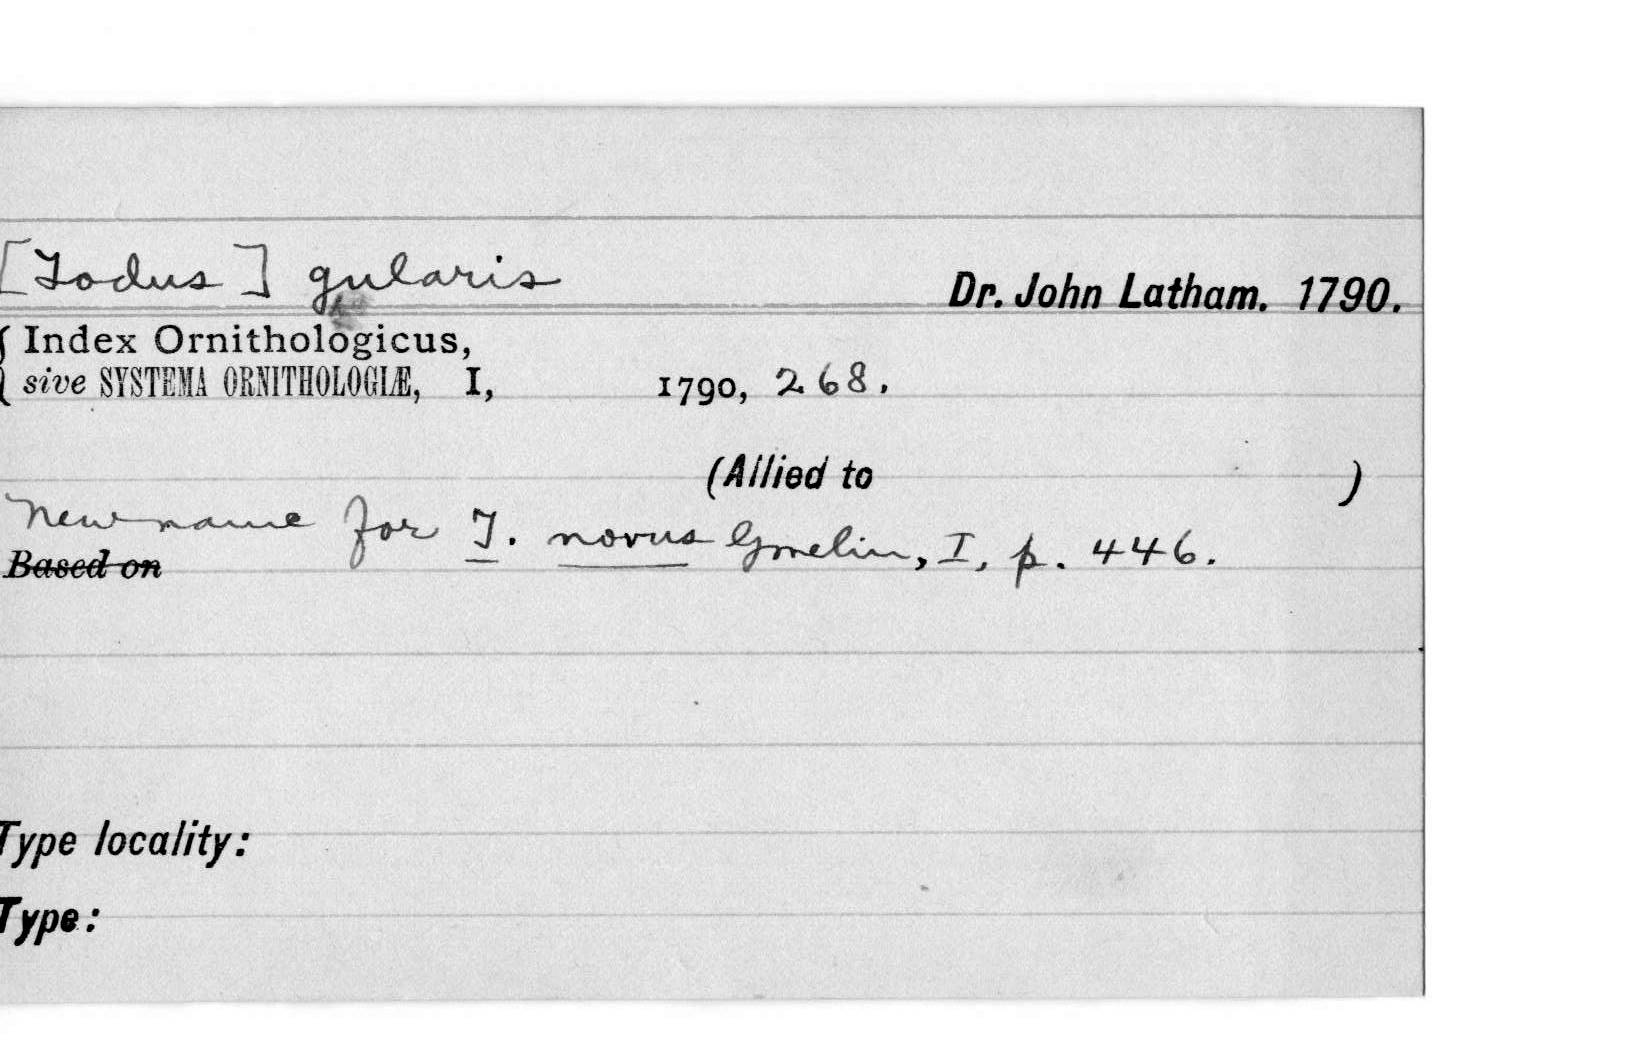 [Todus] gularis
Dr. John Latham. 1790.
Index Ornithologicus,
sive SYSTEMA ORNITHOLOGIÆ, I, 1790, 268.
(Allied to )
New name for T. novus Gmelin, I, p. 446.
Based on
Type locality:
Type: